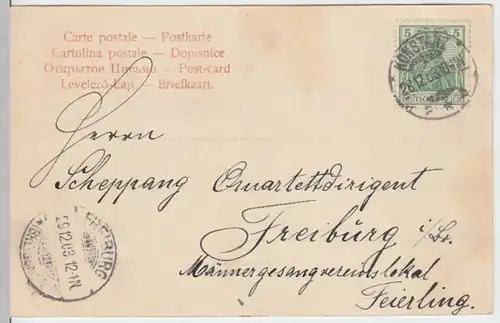 Carte postale — Postkarte
Cartolina postale — Dopisnice
Открытое Письмо — Post-card
Levelező-Lap — Briefkaart.
5 5
KONSTANZ
28.12.03
Herrn
Scheppang Quartettdirigent
Freiburg i/Br.
Männergesangvereinslokal
Feierling.
FREIBURG
29.12.03.12-1N.